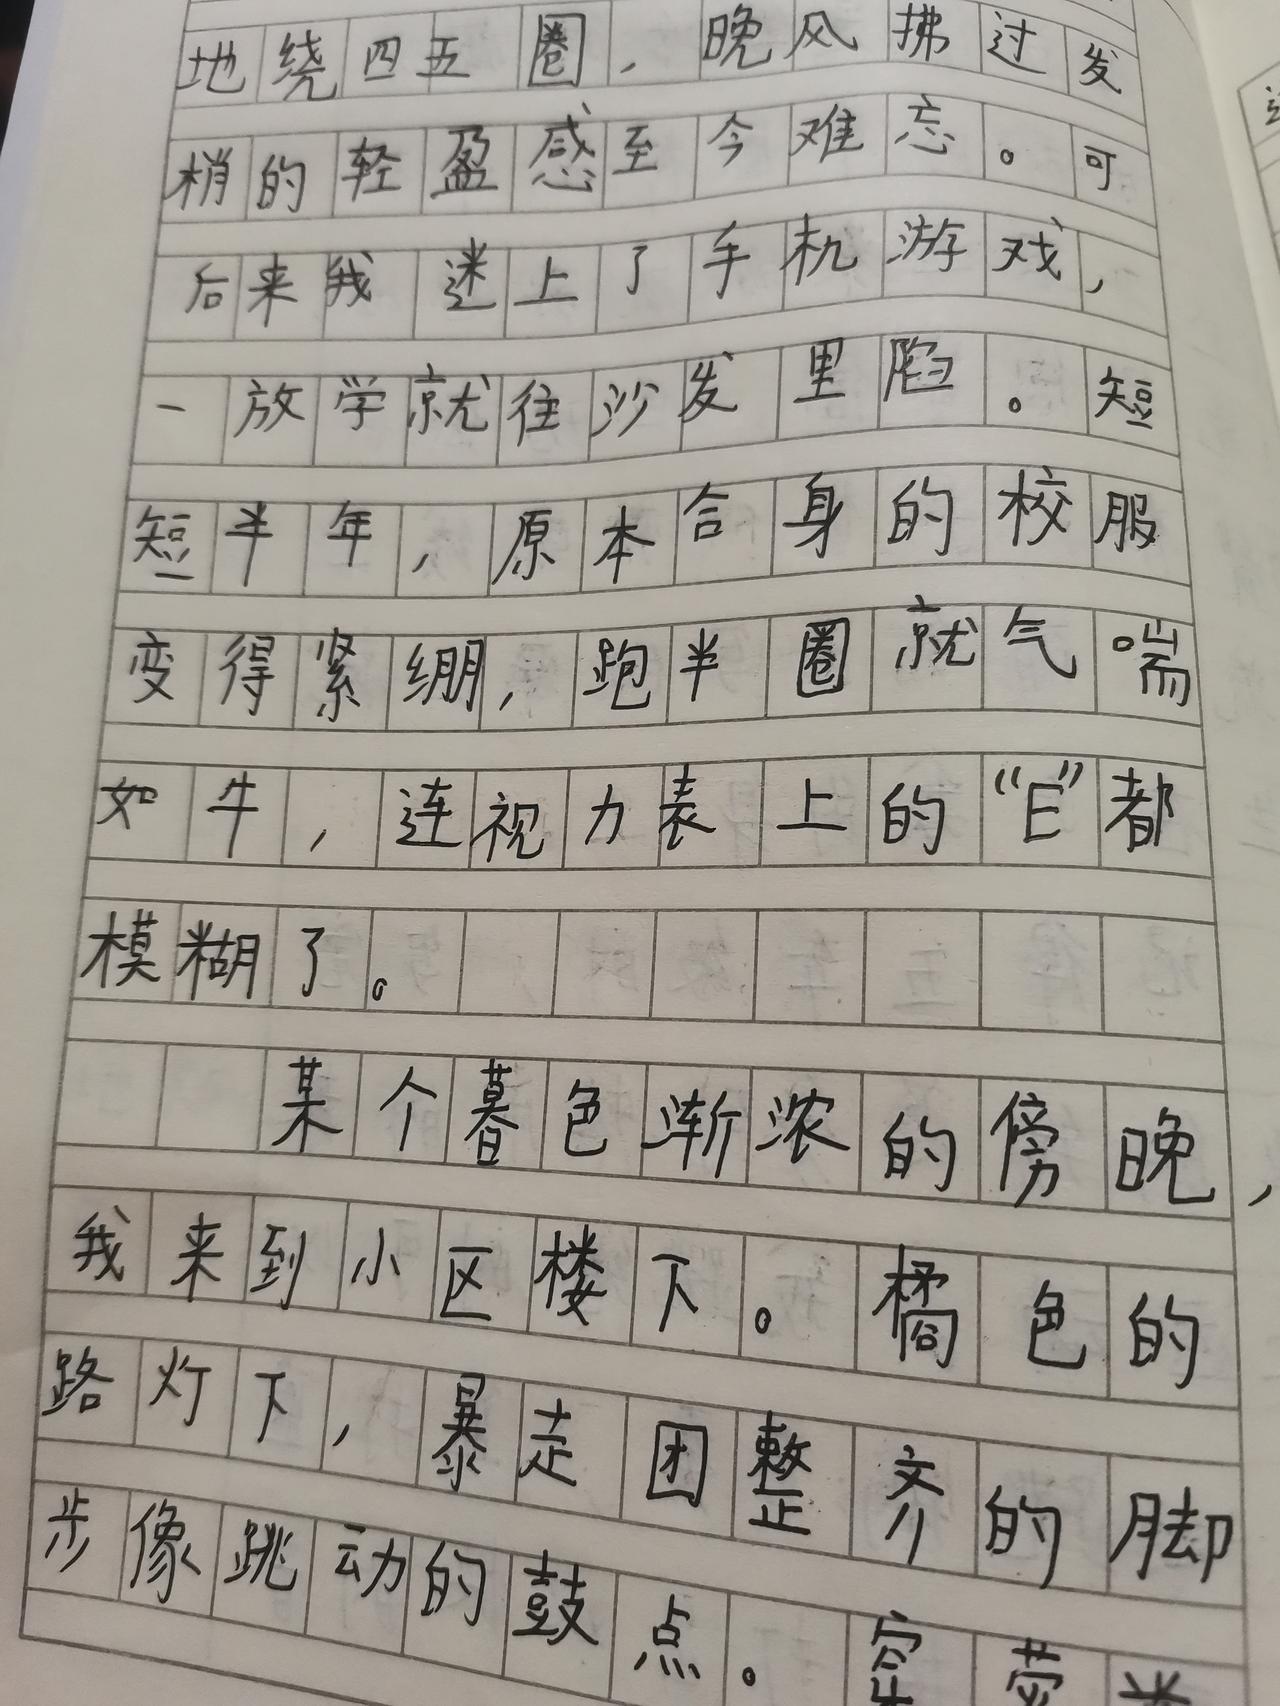 地绕四五圈，晚风拂过发
梢的轻盈感至今难忘。可
后来我迷上了手机游戏，
一放学就往沙发里陷。短
短半年，原本合身的校服
变得紧绷，跑半圈就气喘
如牛，连视力表上的“E”都
模糊了。
某个暮色渐浓的傍晚，
我来到小区楼下。橘色的
路灯下，暴走团整齐的脚
步像跳动的鼓点。穿荧